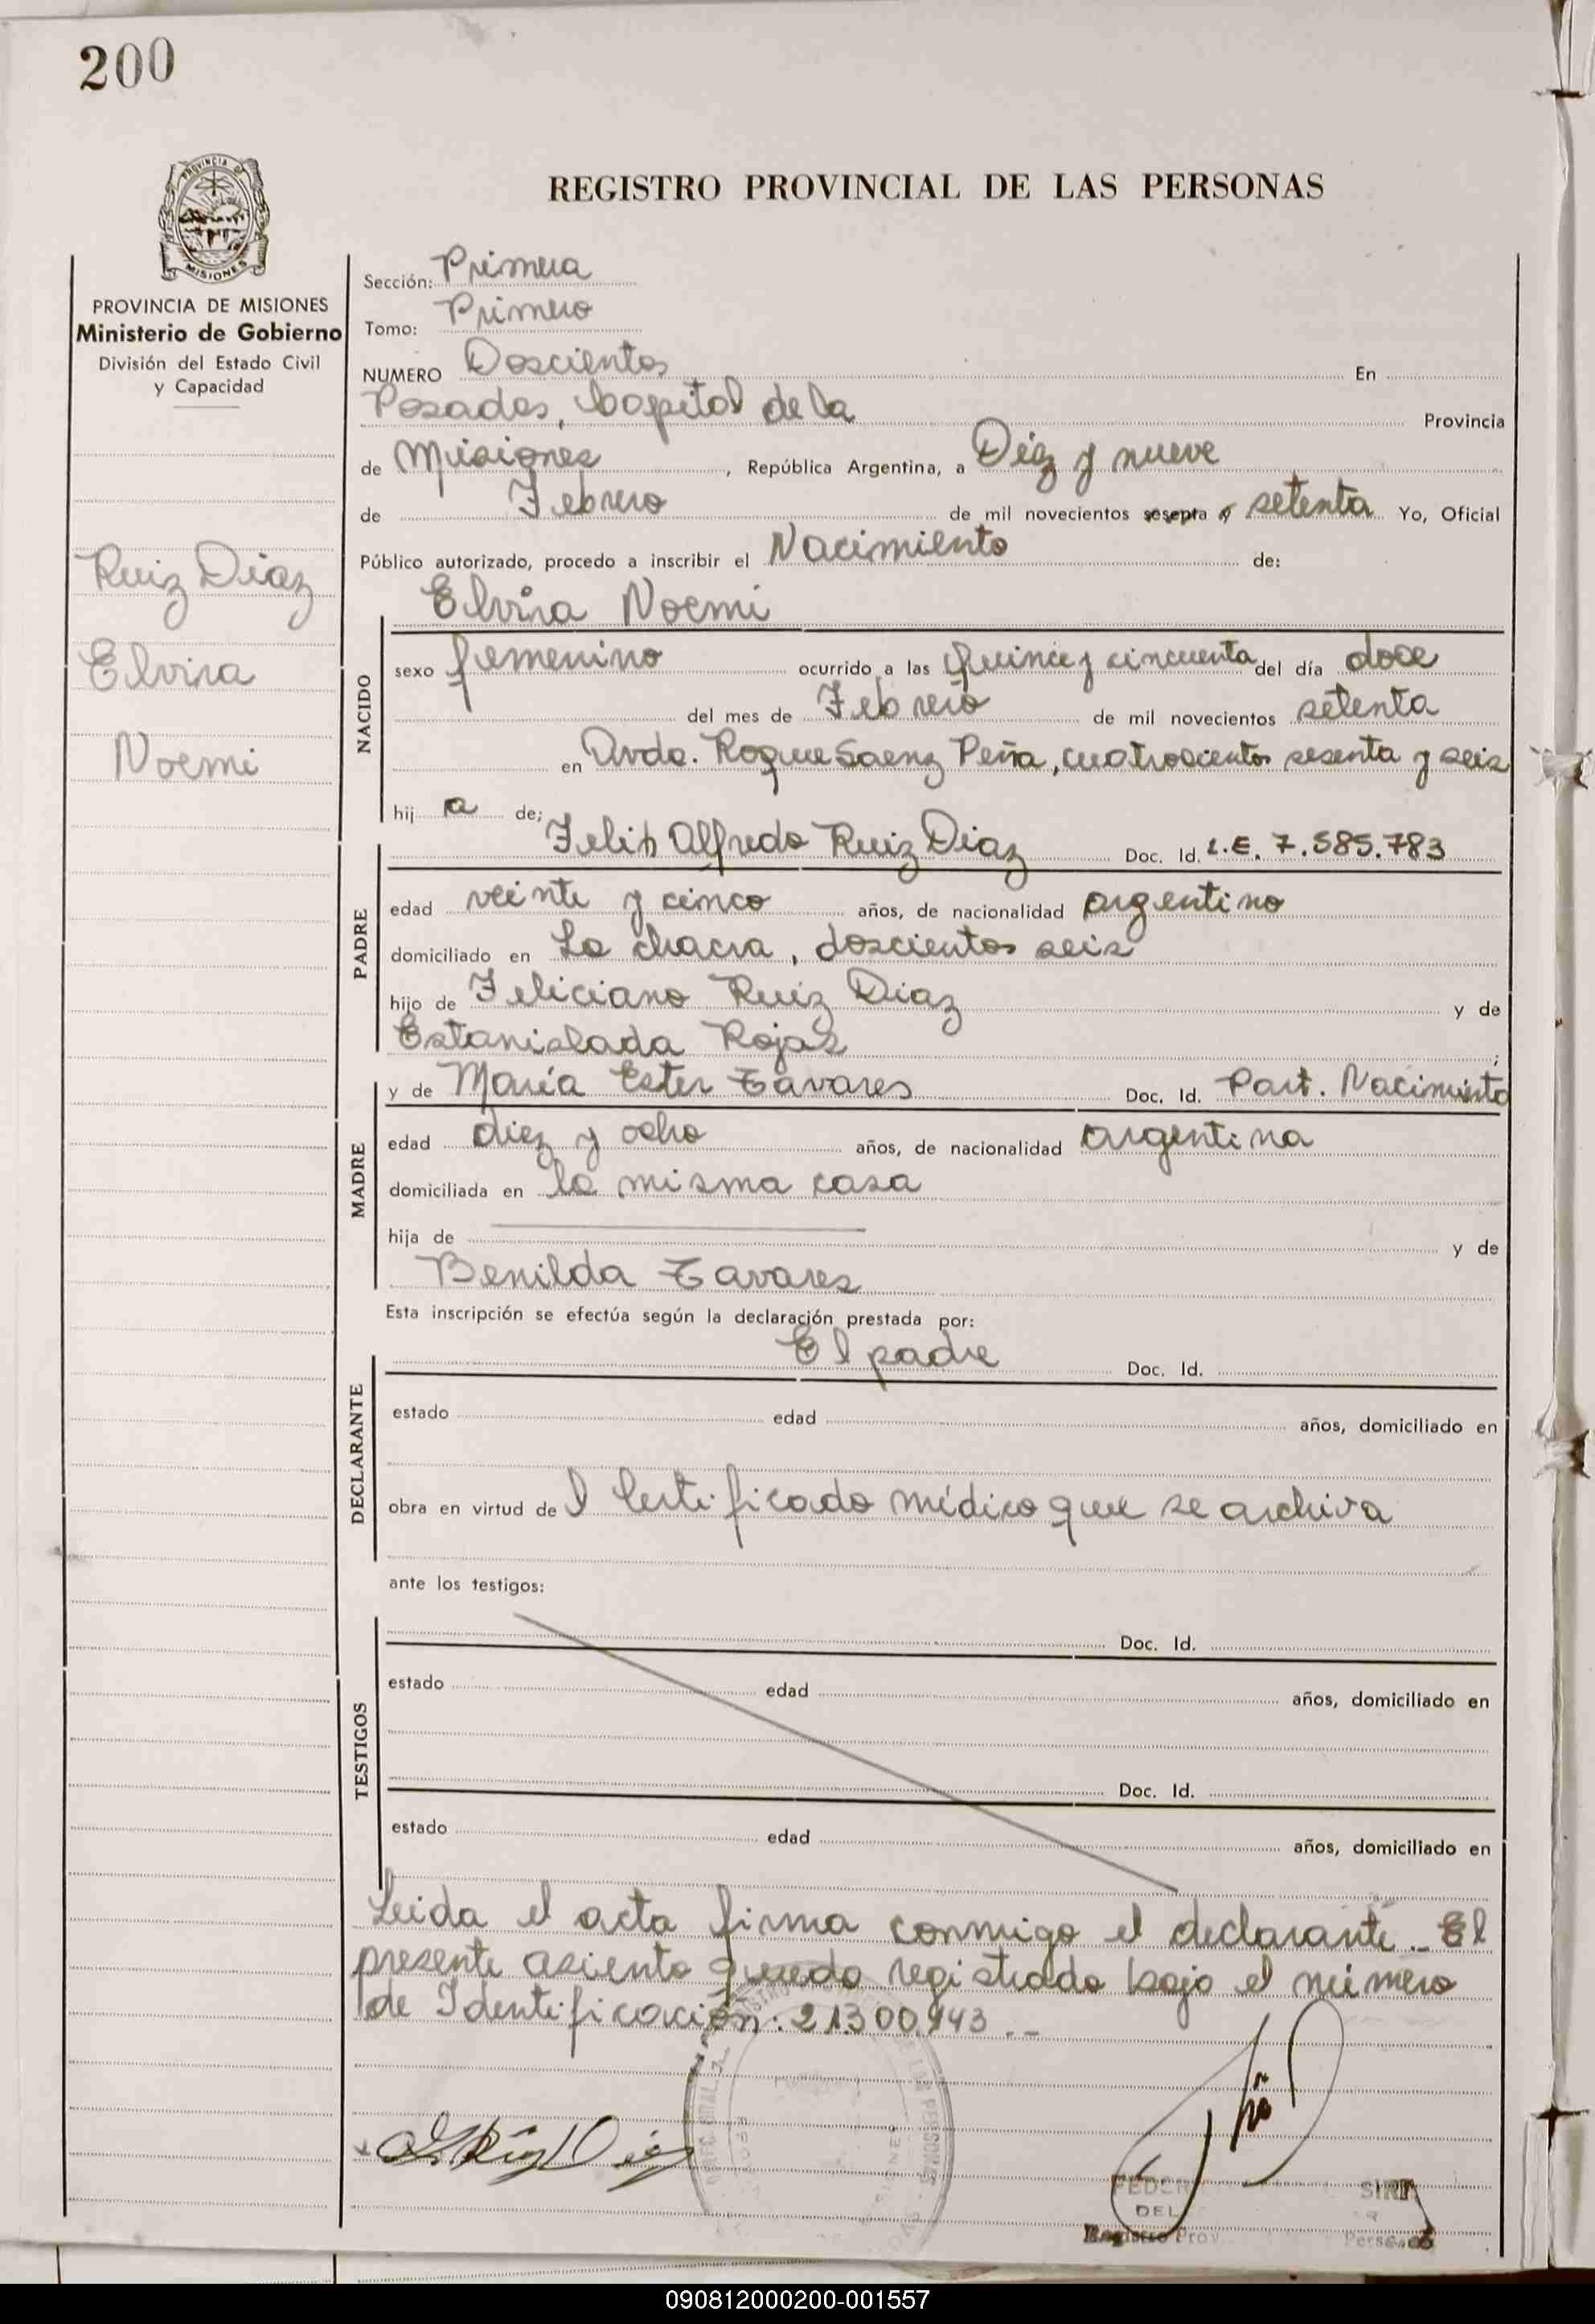 200
PROVINCIA DE
MISIONES
REGISTRO PROVINCIAL DE LAS PERSONAS
PROVINCIA DE MISIONES
Ministerio de Gobierno
División del Estado Civil
y Capacidad
Ruiz Diaz
Elvira
Noemi
Sección: Primera
Tomo: Primero
NUMERO Doscientos En
Posadas, hospital de la Provincia
de Misiones, República Argentina, a Diez y nueve
de Febrero de mil novecientos sesenta y setenta Yo, Oficial
Público autorizado, procedo a inscribir el Nacimiento de:
NACIDO
Elvira Noemi
sexo femenino ocurrido a las quince y cincuenta del día doce
del mes de Febrero de mil novecientos setenta
en Avda. Roque Saenz Peña, cuatrocientos sesenta y seis
hij a de;
PADRE
Felip Alfredo Ruiz Diaz Doc. Id. L.E. 7.585.783
edad veinte y cinco años, de nacionalidad argentino
domiciliado en La chacra, doscientos seis
hijo de Feliciano Ruiz Diaz y de
Estanislada Rojas ;
MADRE
y de María Ester Tavares Doc. Id. Part. Nacimiento
edad diez y ocho años, de nacionalidad argentina
domiciliada en la misma casa
hija de y de
Benilda Tavares
Esta inscripción se efectúa según la declaración prestada por:
DECLARANTE
El padre Doc. Id.
estado edad años, domiciliado en
obra en virtud de l Certificado médico que se archiva
ante los testigos:
TESTIGOS
Doc. Id.
estado edad años, domiciliado en
Doc. Id.
estado edad años, domiciliado en
Leida el acta firma conmigo el declarante.- El
presente asiento quedo registrado bajo el número
de Identificación: 21.300.943.--
DEL
Registro Prov.
090812000200-001557